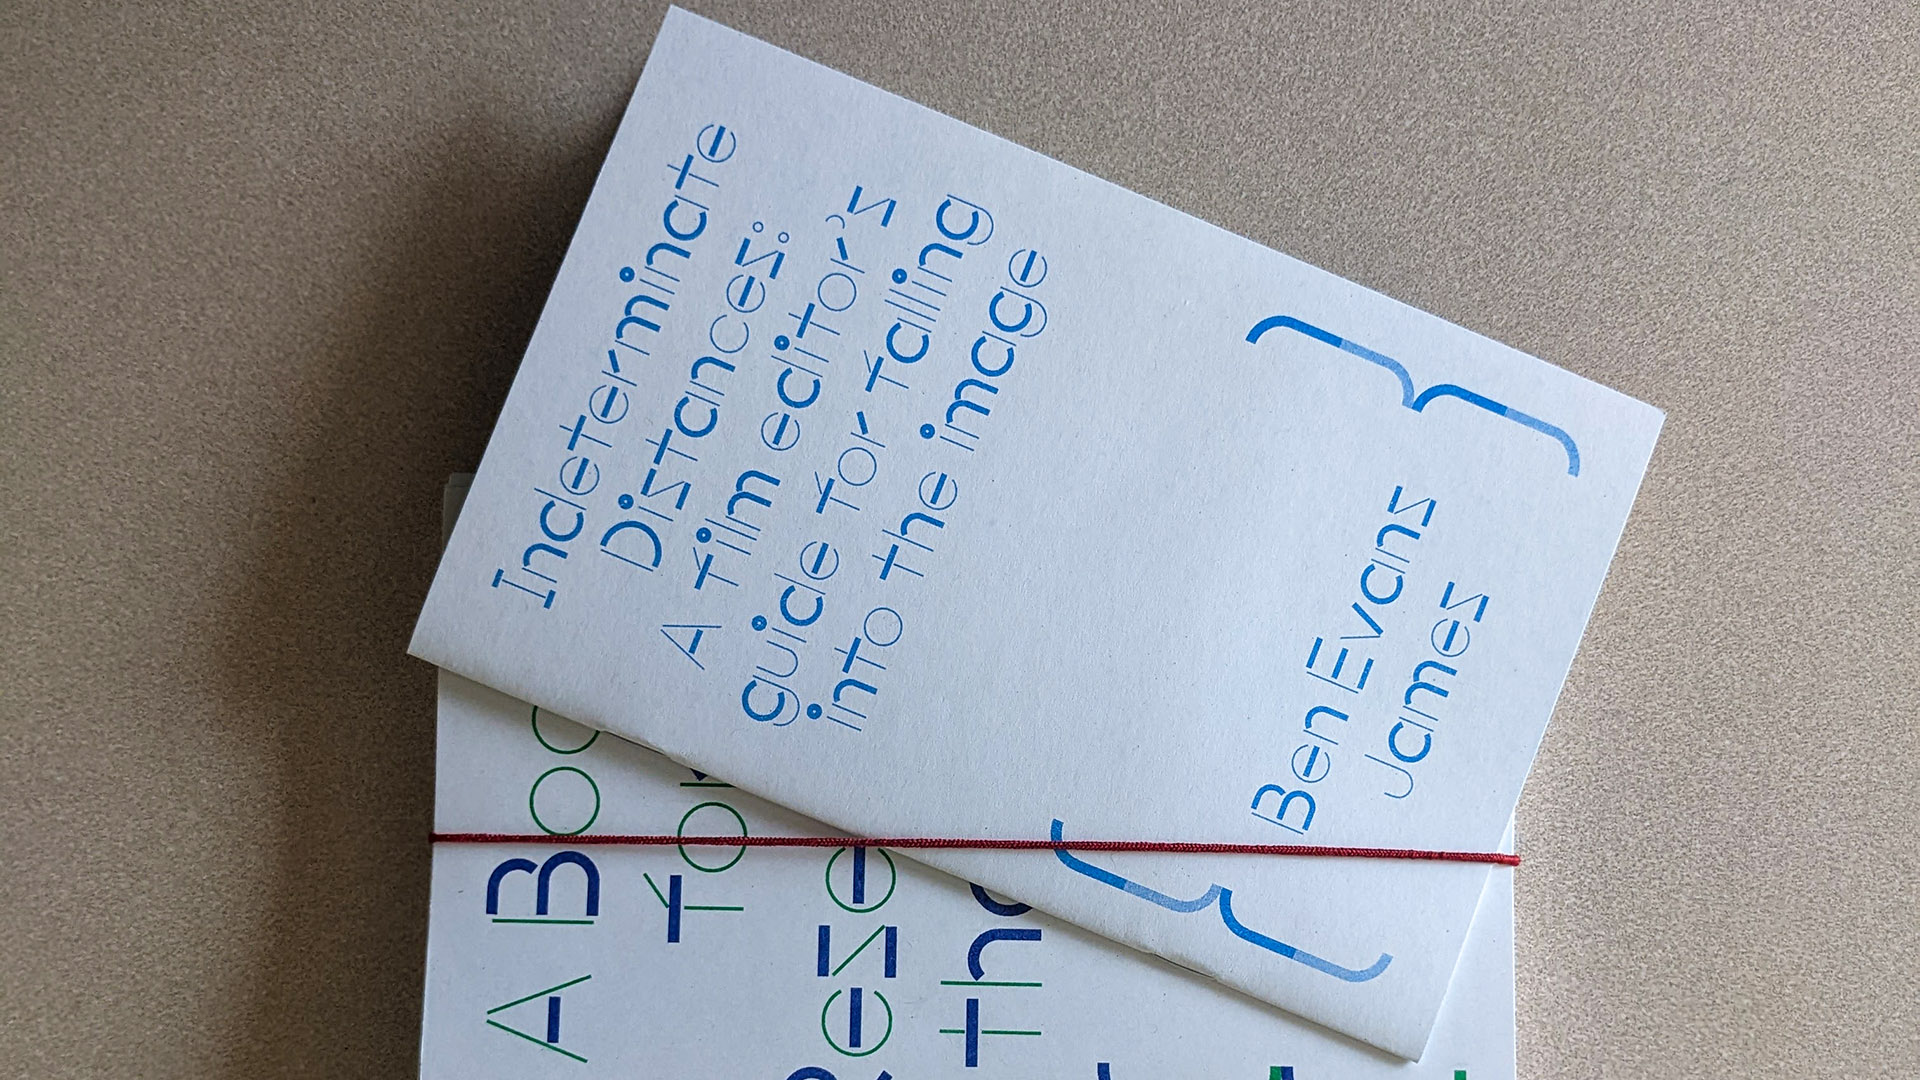 Indeterminate
Distances:
A film editor's
guide for falling
into the image
{ Ben Evans
James }
A